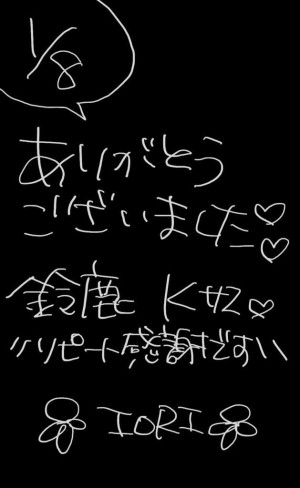 1/8
ありがとう
ございました♡♡
鈴鹿 K様♡
リピート感謝です
IORI